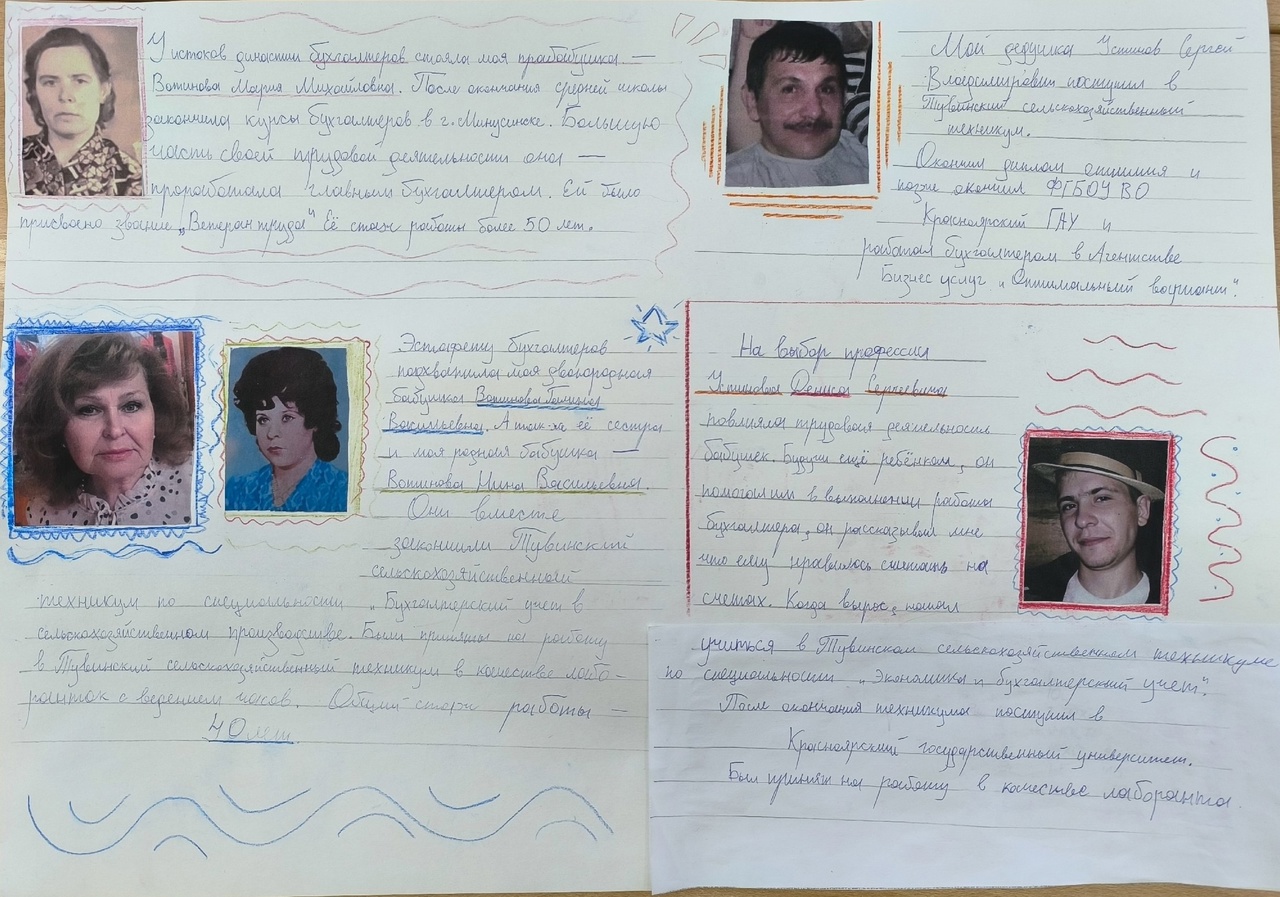 У истоков династии бухгалтеров стояла моя прабабушка —
Вотинова Мария Михайловна. После окончания средней школы
закончила курсы бухгалтеров в г. Минусинске. Большую
часть своей трудовой деятельности она —
проработала главным бухгалтером. Ей было
присвоено звание „Ветеран труда" Её стаж работы более 50 лет.
Мой дедушка Устинов Сергей
Владимирович поступил в
Тувинский сельскохозяйственный
техникум.
Окончил диплом отлично и
позже окончил ФГБОУ ВО
Красноярский ГАУ и
работал бухгалтером в Агентстве
Бизнес услуг „Оптимальный вариант".
Эстафету бухгалтеров
подхватила моя двоюродная
бабушка Вотинова Галина
Васильевна. А так-же её сестра
и моя родная бабушка —
Вотинова Нина Васильевна.
Они вместе
закончили Тувинский
сельскохозяйственный
техникум по специальности „Бухгалтерский учет в
сельскохозяйственном производстве. Были приняты на работу
в Тувинский сельскохозяйственный техникум в качестве лабо-
ранток с ведением часов. Общий стаж работы —
40 лет
На выбор профессии
Устинова Дениса Сергеевича
повлияла трудовая деятельность
бабушек. Будучи ещё ребёнком, он
помогал им в выполнении работы
бухгалтера, он рассказывал мне
что ему нравилось считать на
счетах. Когда вырос, пошел
учиться в Тувинском сельскохозяйственнем техникуме
по специальности „Экономика и бухгалтерский учет".
После окончания техникума поступил в
Красноярский государственный университет.
Был принят на работу в качестве лаборанта.